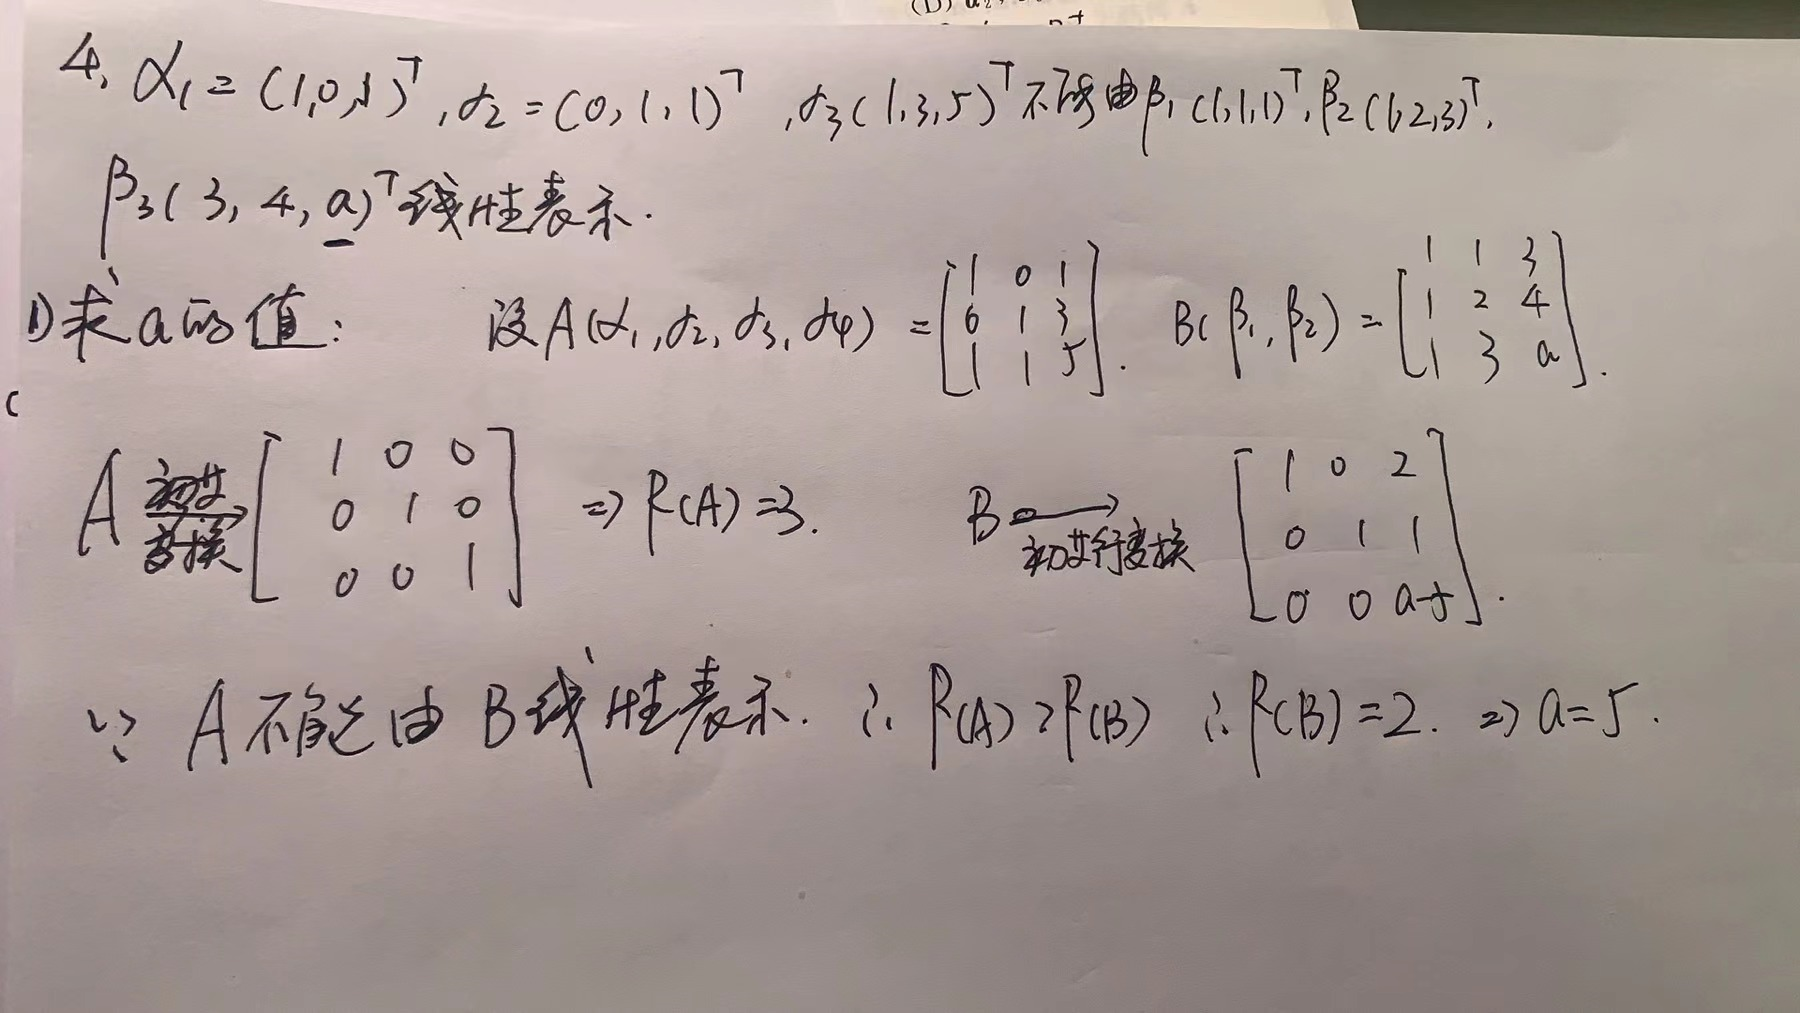 (D) α₂,
4. α₁ = (1,0,1)ᵀ, α₂ = (0,1,1)ᵀ, α₃(1,3,5)ᵀ不能由β₁(1,1,1)ᵀ, β₂(1,2,3)ᵀ,
β₃(3,4,a)ᵀ线性表示.
1)求a的值: 设A(α₁,α₂,α₃,α₄) = [1 0 1; 0 1 3; 1 1 5]. B(β₁,β₂) = [1 1 3; 1 2 4; 1 3 a].
A 初等变换→ [1 0 0; 0 1 0; 0 0 1] ⇒ R(A)=3. B →初等行变换 [1 0 2; 0 1 1; 0 0 a-5].
∵ A不能由B线性表示. ∴ R(A)>R(B) ∴ R(B)=2. ⇒ a=5.